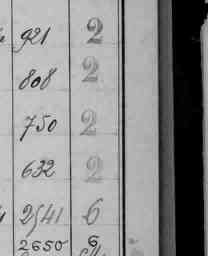 921 2
808 2
750 2
632 2
2541 6
2650 6